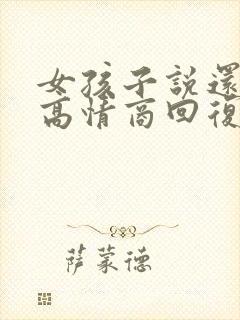 女孩子說還
高情商回復
萨蒙德